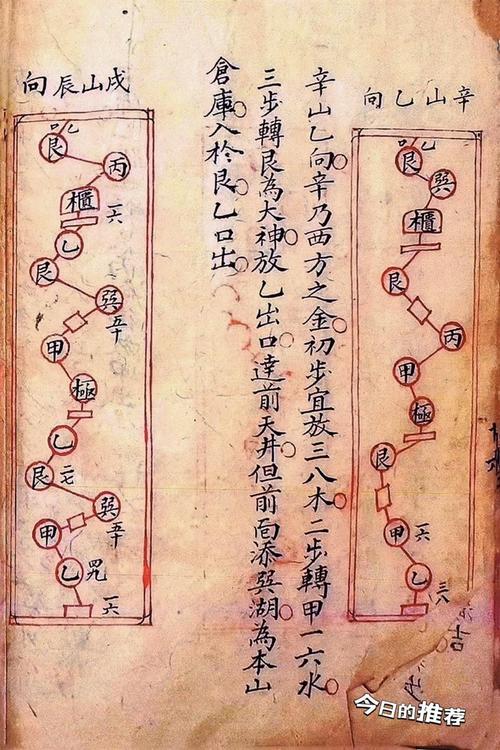 辛山乙向
乙
艮
巽
櫃
艮
丙
甲
極
艮
甲
一六
乙
三八
吉
辛山乙向辛乃西方之金初步宜放三八木二步轉甲一六水
三步轉艮為大神放乙出口達前天井但前面添巽湖為本山
倉庫入於艮乙口出
戌山辰向
乙
艮
丙
櫃
一六
乙
艮
巽
五十
甲
極
乙
艮
二七
巽
五十
甲
乙
四九
一六
今日的推荐